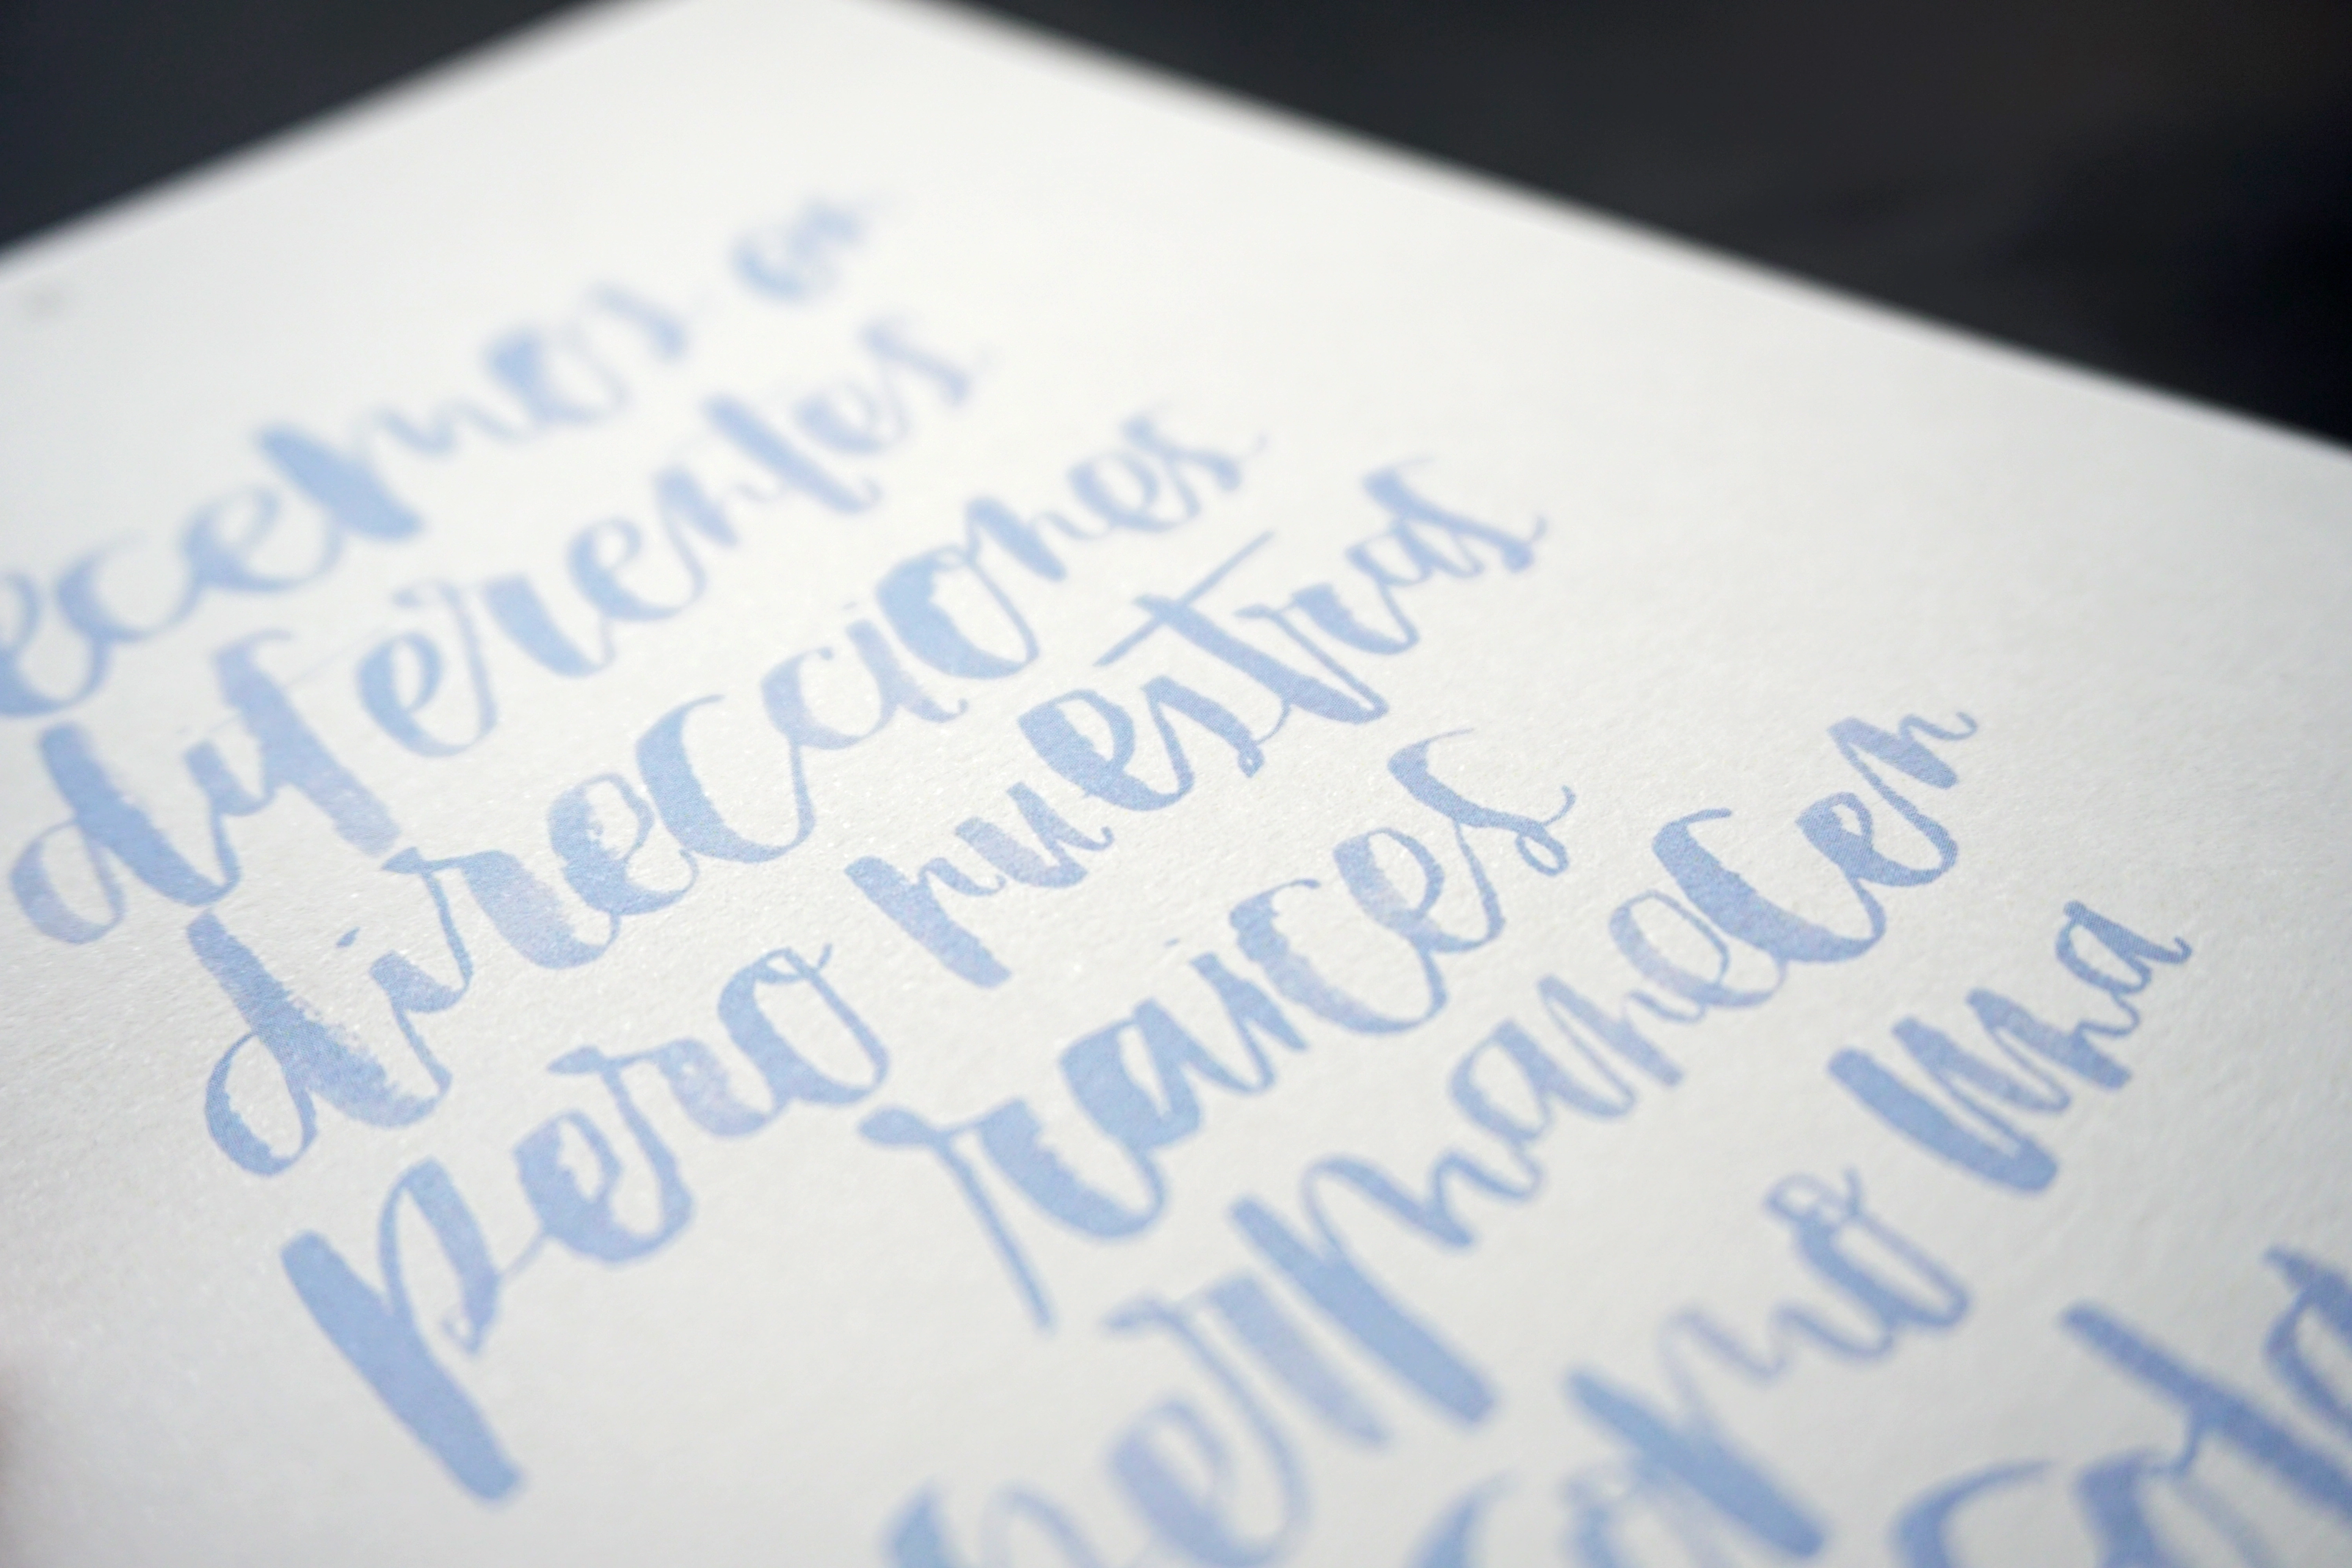 ecemos en
diferentes
direcciones
pero nuestras
raices
permanecen
como una